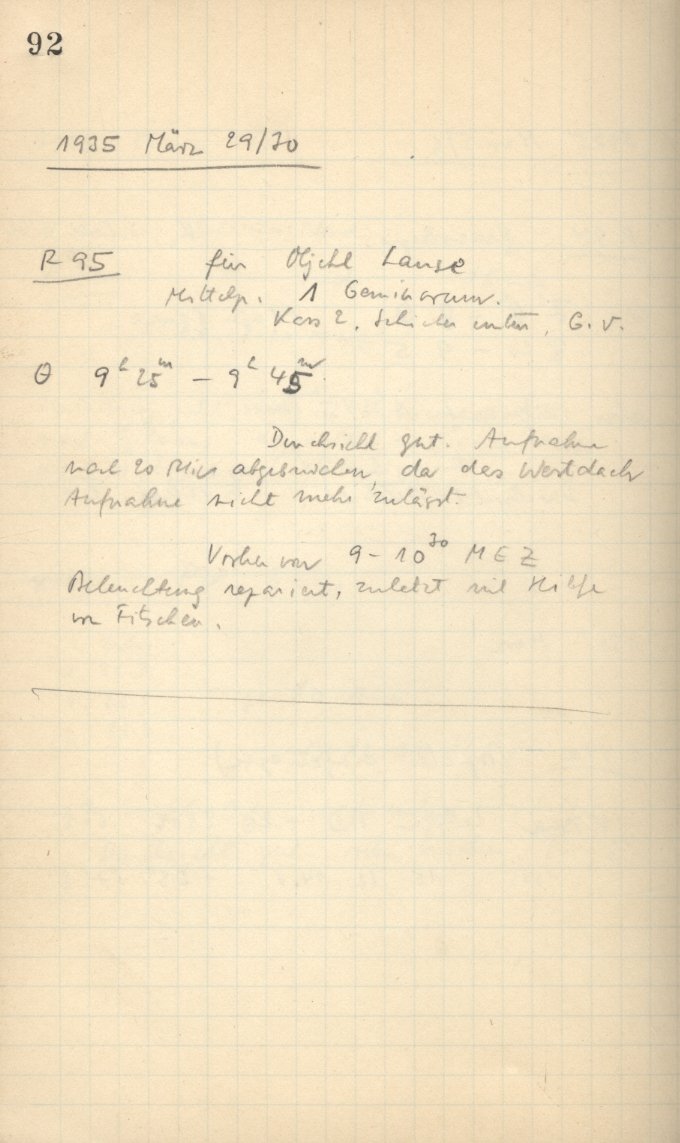 92
1935 März 29/30
R 95 für Objekt Lause
Mittelp. 1 Geminorum.
Kass 2, Schicht unten, G. V.
θ 9h 25m – 9h 45m
Durchsicht gut. Aufnahme
nach 20 Min abgebrochen, da das Westdach
Aufnahme nicht mehr zulässt.
Vorher von 9 – 10 30 MEZ
Beleuchtung repariert, zuletzt mit Hilfe
von Fitschen.